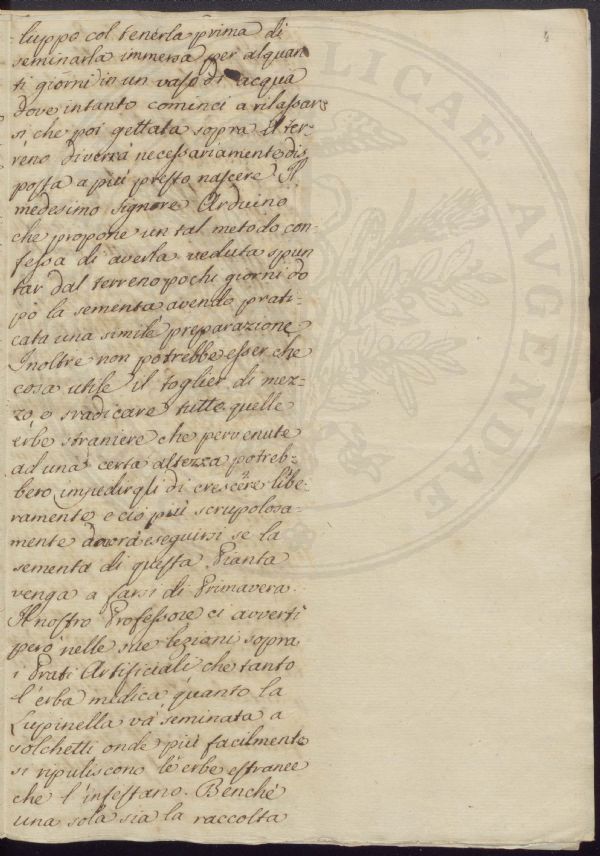 4
luppo col tenerla prima di
seminarla immersa per alquan
ti giorni in un vaso di acqua
dove intanto cominci a rilassar
si che poi gettata sopra il ter-
reno diverrà necessariamente dis
posta a più presto nascere Il
medesimo Signore Arduino
che propone un tal metodo con-
fessa di averla veduta spun
tar dal terreno pochi giorni do
po la sementa avendo prati-
cata una simile preparazione
Inoltre non potrebbe esser che
cosa utile il toglier di mez-
zo e sradicare tutte quelle
erbe straniere che pervenute
ad una certa altezza potreb-
bero impedirgli di crescere libe-
ramente e ciò più scrupolosa-
mente dovrà eseguirsi se la
sementa di questa Pianta
venga a farsi di Primavera.
Il nostro Professore ci avvertì
però nelle sue lezioni sopra
i Prati Artificiali che tanto
l'erba medica quanto la
Lupinella và seminata a
solchetti onde più facilmente
si ripuliscono le erbe estranee
che l'infestano. Benché
una sola sia la raccolta
PUBLICAE AUGENDAE